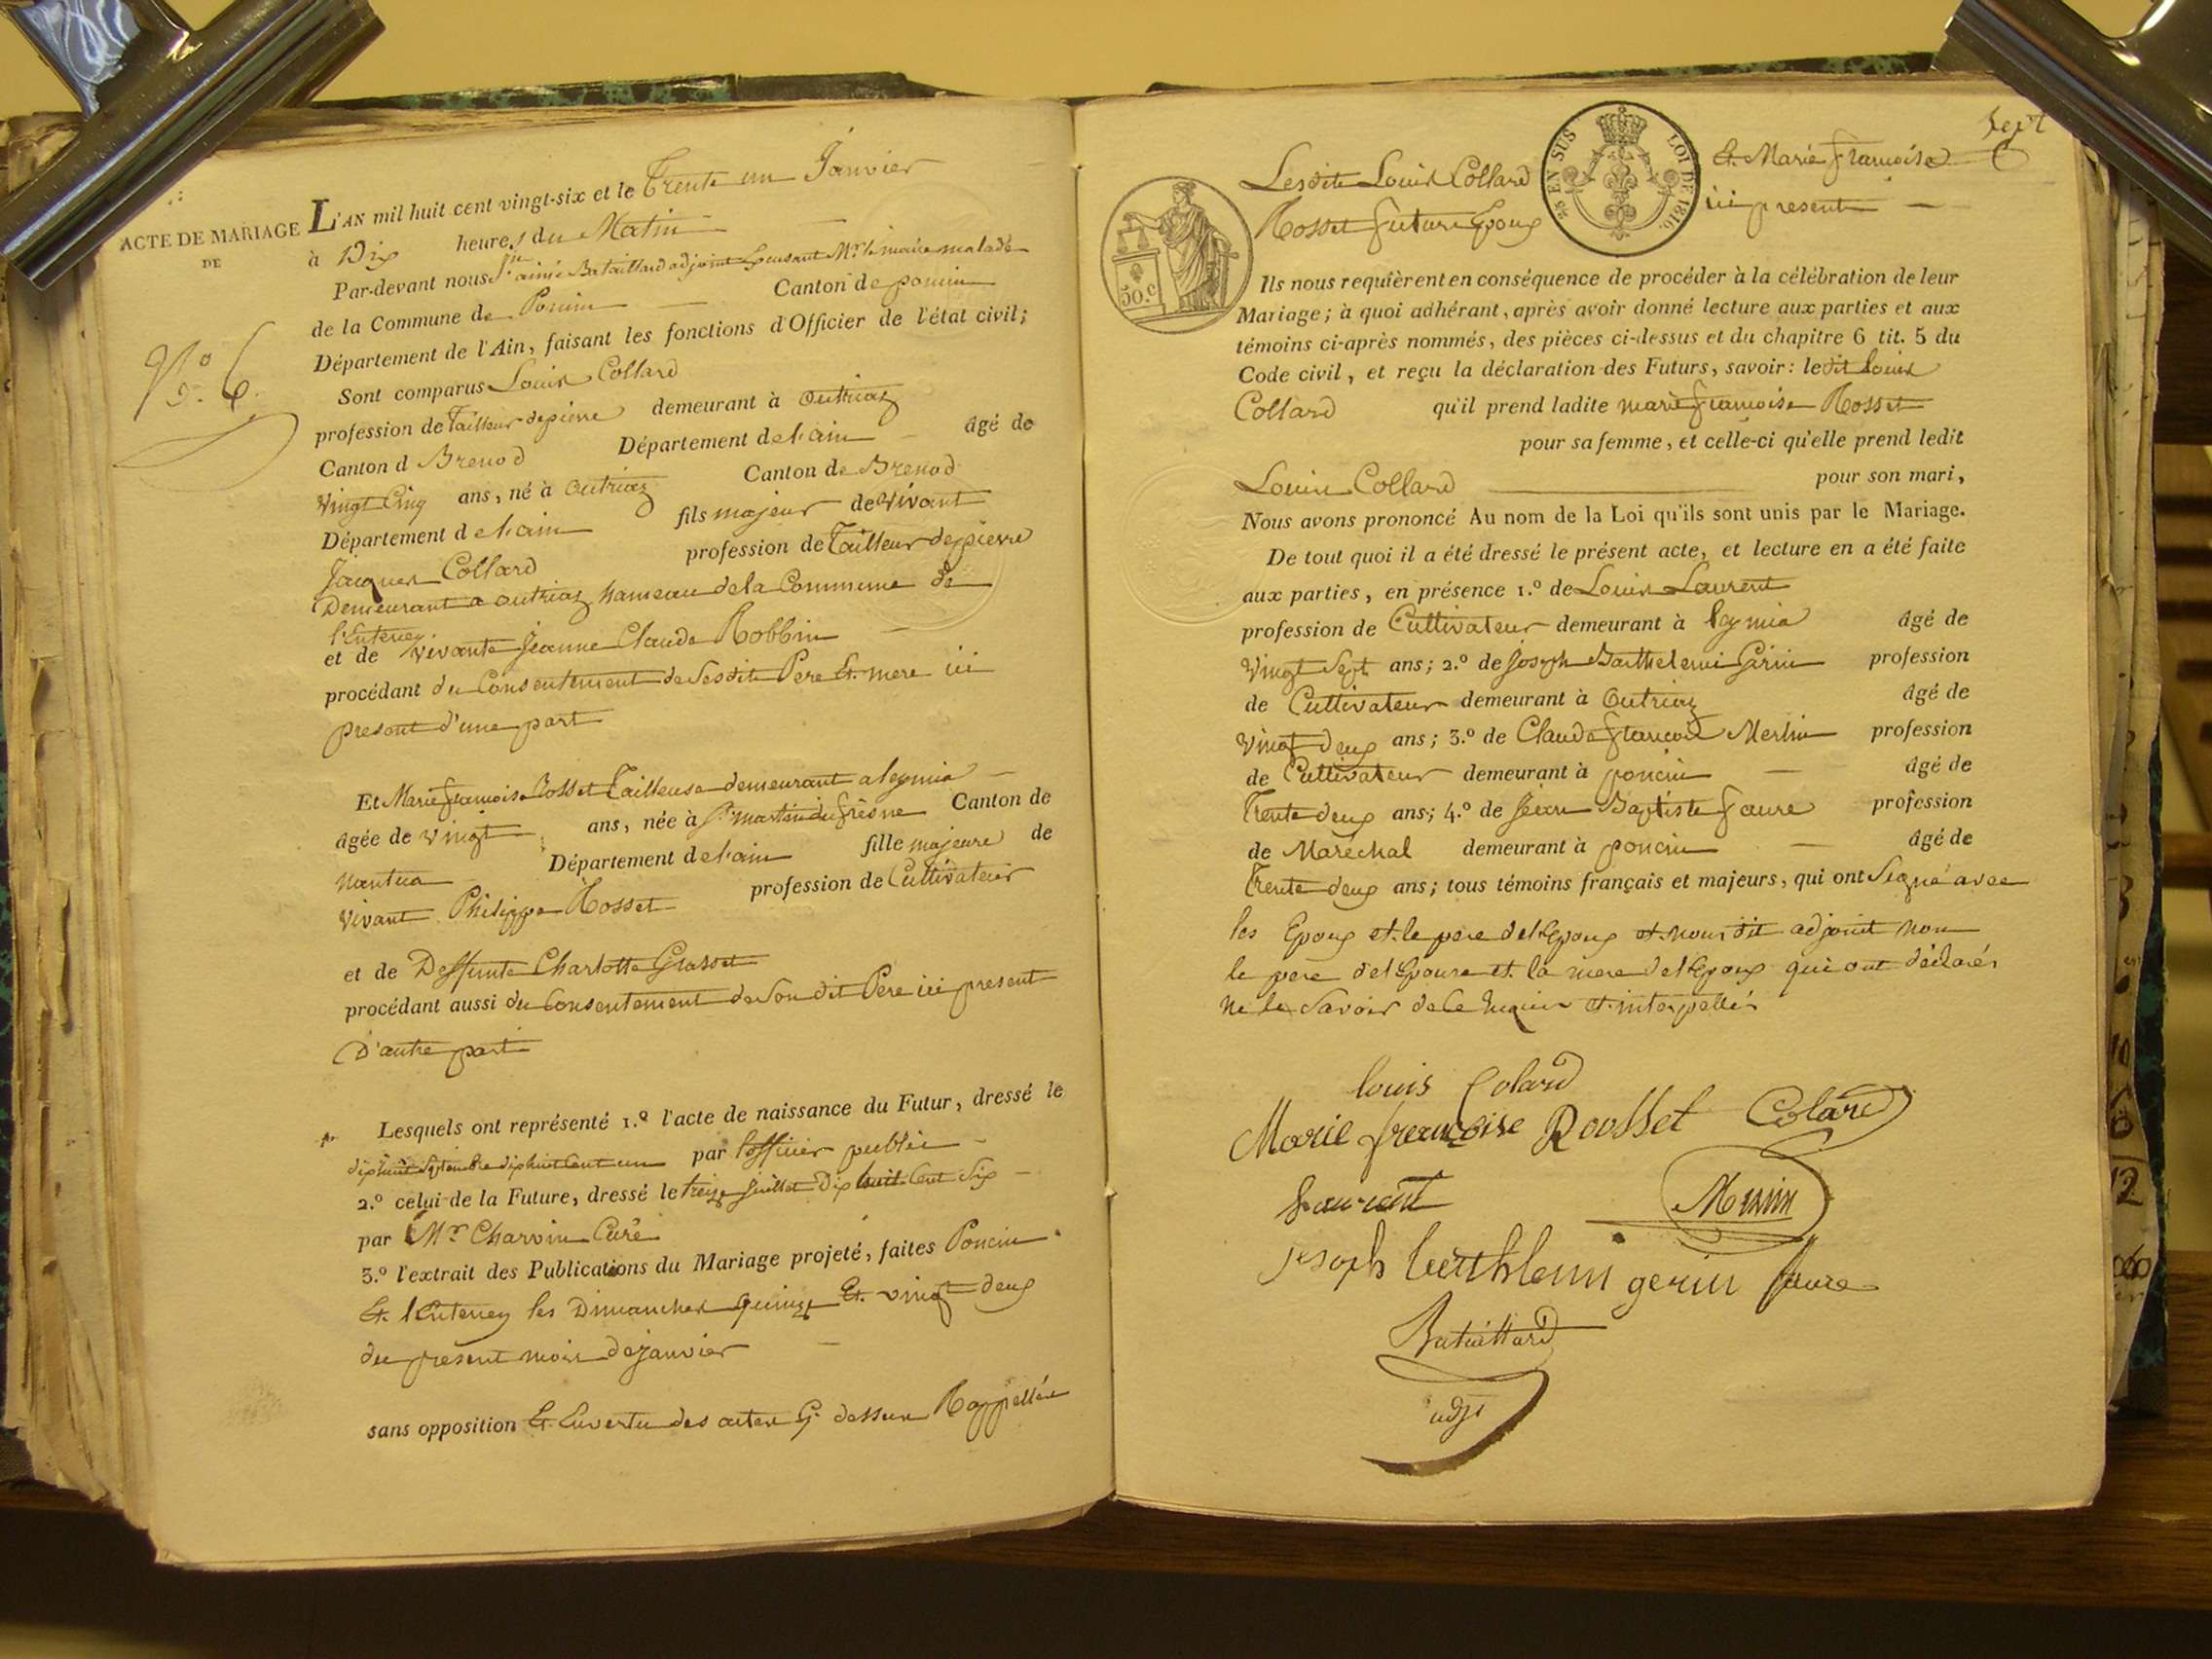 ACTE DE MARIAGE
DE
N.o 6.
L'AN mil huit cent vingt-six et le Trente un Janvier
à Dix heures du Matin
Par-devant nous aimé Bataillard adjoint Mr. le maire malade
de la Commune de Poncin Canton de poncin
Département de l'Ain, faisant les fonctions d'Officier de l'état civil;
Sont comparus Louis Collard
profession de Tailleur de pierre demeurant à Outriaz
Canton d Brenod Département de l'ain âgé de
vingt Cinq ans, né à Outriaz Canton de Brenod
Département d el'ain fils majeur de vivant
Jacques Collard profession de Tailleur de pierre
Demeurant a outriaz hameau de la Commune de
l'Enteney
et de vivante Jeanne Claude Robbin
procédant du Consentement de Sesdits Pere Et mere ici
present d'une part
Et Marie françoise Rosset Tailleuse demeurant a leymia
âgée de vingt ans, née à St martin du frêsne Canton de
nantua Département de l'ain fille majeure de
vivant Philippe Rosset profession de Cultivateur
et de Deffunte Charlotte Grasset
procédant aussi du Consentement de Son dit Pere ici present
D'autre part
Lesquels ont représenté 1.o l'acte de naissance du Futur, dressé le
dix huit Septembre dix huit Cent un par l'officier public
2.o celui de la Future, dressé le treize Juillet Dix huit Cent Six
par Mr Charvin Curé
3.o l'extrait des Publications du Mariage projeté, faites Poncin
Et l'Enteney les Dimanches quinze Et vingt deux
du present mois de janvier
sans opposition Et Envertu des actes Cy dessus Rappellés
Sept
Lesdits Louis Collard Et Marie françoise
Rosset futurs Epoux ici presents
EN SUS LOI DE 1816.
50.c
Ils nous requièrent en conséquence de procéder à la célébration de leur
Mariage; à quoi adhérant, après avoir donné lecture aux parties et aux
témoins ci-après nommés, des pièces ci-dessus et du chapitre 6 tit. 5 du
Code civil, et reçu la déclaration des Futurs, savoir: ledit Louis
Collard qu'il prend ladite marie françoise Rosset
pour sa femme, et celle-ci qu'elle prend ledit
Louis Collard pour son mari,
Nous avons prononcé Au nom de la Loi qu'ils sont unis par le Mariage.
De tout quoi il a été dressé le présent acte, et lecture en a été faite
aux parties, en présence 1.o de Louis Laurent
profession de Cultivateur demeurant à leymia âgé de
vingt Sept ans; 2.o de Joseph Barthelemi Girin profession
de Cultivateur demeurant à Outriaz âgé de
vingt deux ans; 3.o de Claude françois Merlin profession
de Cultivateur demeurant à poncin âgé de
Trente deux ans; 4.o de Jean Baptiste faure profession
de Maréchal demeurant à poncin âgé de
Trente deux ans; tous témoins français et majeurs, qui ont Signé avec
les Epoux et le pere del'Epoux et nous dit adjoint non
le pere del'Epouse et la mere del'Epoux qui ont déclarés
ne le Savoir de ce Requis et interpellés
louis Colard
Marie françoise Roosset Colard
Laurent
joseph gerin faure
Bataillard
adjt